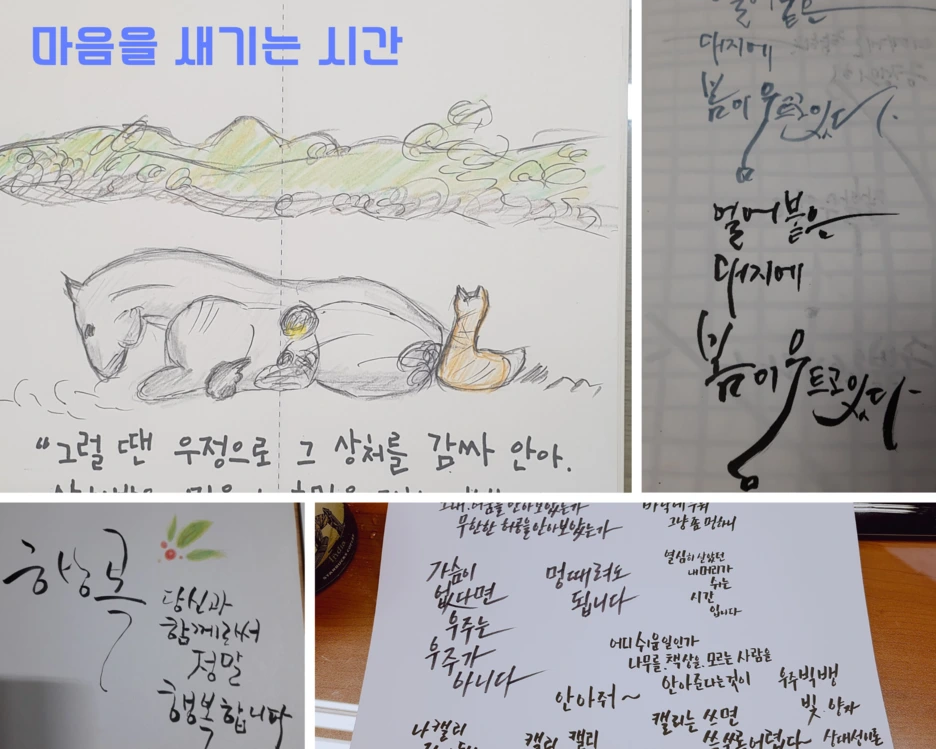 마음을 새기는 시간
"그럴 땐 우정으로 그 상처를 감싸 안아.
얼어붙은
대지에
봄이 움트고 있다.
얼어붙은
대지에
봄이 움트고 있다
항상 곡
당신과
함께라서
정말
행복합니다
무한한 허공을 안아보았는가
그냥 좀 멍하니
가슴이
없다면
우주는
우주가
아니다
멍때려도
됩니다
열심히 살았던
내 머리가
쉬는
시간
입니다
어디 쉬운 일인가
나무를, 책상을, 모르는 사람을
안아준다는 것이
안아줘~
우주 빅뱅
빛. 양자
캘리는 쓰면
쓸수록 어렵다
상대성이론
나 캘리
캘리 캘리